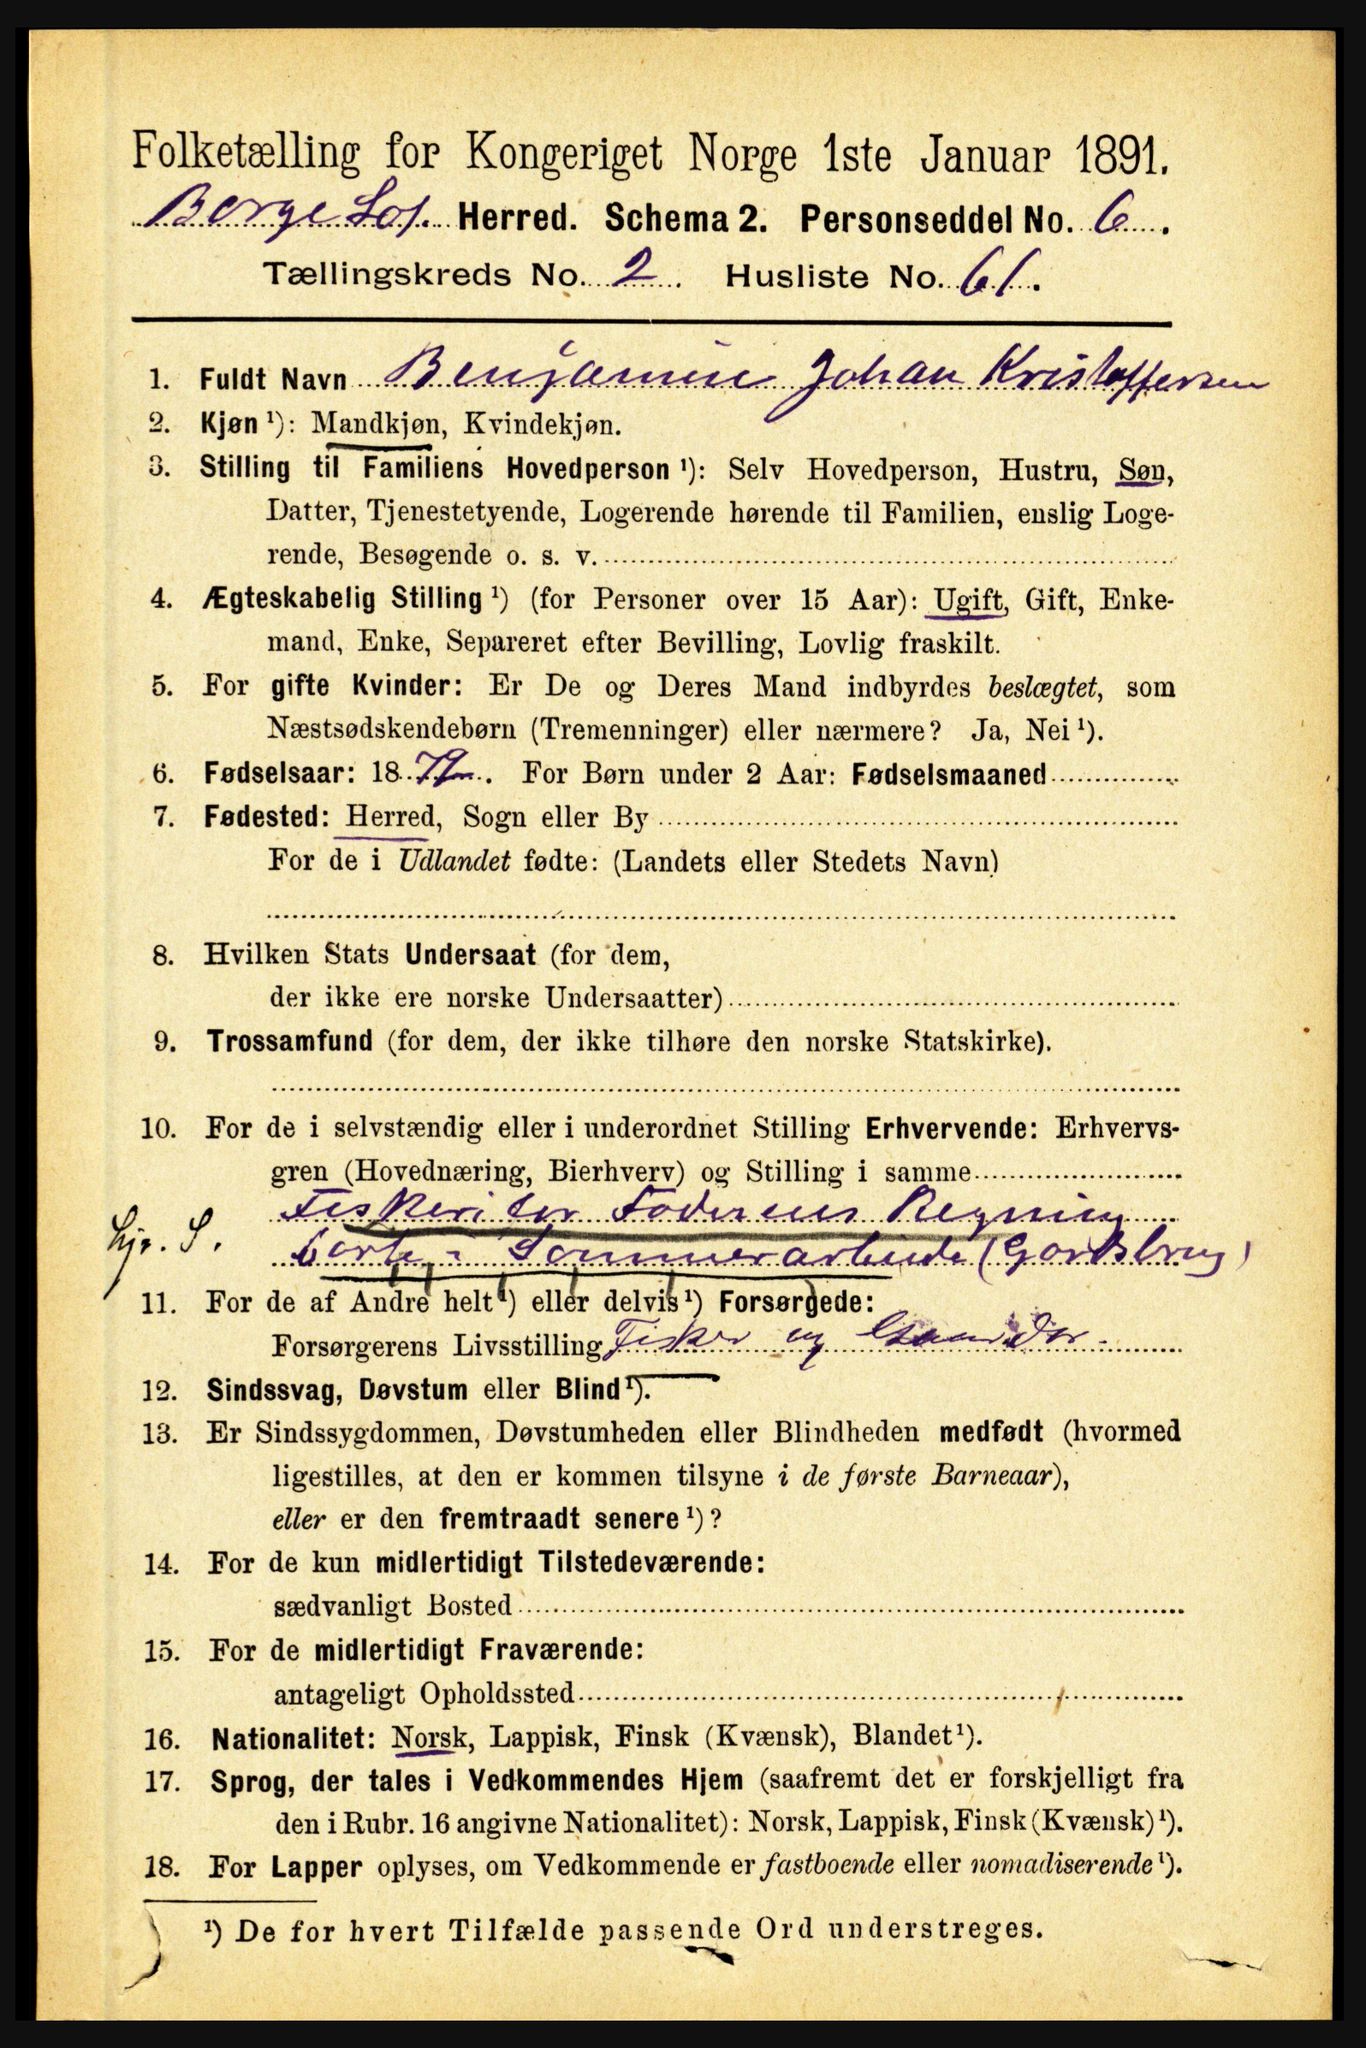 Folketælling for Kongeriget Norge 1ste Januar 1891.
Borge Lof. Herred. Schema 2. Personseddel No. 6.
Tællingskreds No. 2. Husliste No. 61.
1. Fuldt Navn Benjamin Johan Kristoffersen
2. Kjøn ¹): Mandkjøn, Kvindekjøn.
3. Stilling til Familiens Hovedperson ¹): Selv Hovedperson, Hustru, Søn,
Datter, Tjenestetyende, Logerende hørende til Familien, enslig Loge-
rende, Besøgende o. s. v.
4. Ægteskabelig Stilling ¹) (for Personer over 15 Aar): Ugift, Gift, Enke-
mand, Enke, Separeret efter Bevilling, Lovlig fraskilt.
5. For gifte Kvinder: Er De og Deres Mand indbyrdes beslægtet, som
Næstsødskendebørn (Tremenninger) eller nærmere? Ja, Nei ¹).
6. Fødselsaar: 1879. For Børn under 2 Aar: Fødselsmaaned
7. Fødested: Herred, Sogn eller By
For de i Udlandet fødte: (Landets eller Stedets Navn)
8. Hvilken Stats Undersaat (for dem,
der ikke ere norske Undersaatter)
9. Trossamfund (for dem, der ikke tilhøre den norske Statskirke).
10. For de i selvstændig eller i underordnet Stilling Erhvervende: Erhvervs-
gren (Hovednæring, Bierhverv) og Stilling i samme
Fiskeri for Faderens Regning
Hjr. S. Sommerarbeide (Gardsbrug)
11. For de af Andre helt ¹) eller delvis ¹) Forsørgede:
Forsørgerens Livsstilling Fisker og Gaardbr.
12. Sindssvag, Døvstum eller Blind ¹).
13. Er Sindssygdommen, Døvstumheden eller Blindheden medfødt (hvormed
ligestilles, at den er kommen tilsyne i de første Barneaar),
eller er den fremtraadt senere ¹)?
14. For de kun midlertidigt Tilstedeværende:
sædvanligt Bosted
15. For de midlertidigt Fraværende:
antageligt Opholdssted
16. Nationalitet: Norsk, Lappisk, Finsk (Kvænsk), Blandet ¹).
17. Sprog, der tales i Vedkommendes Hjem (saafremt det er forskjelligt fra
den i Rubr. 16 angivne Nationalitet): Norsk, Lappisk, Finsk (Kvænsk) ¹).
18. For Lapper oplyses, om Vedkommende er fastboende eller nomadiserende ¹).
¹) De for hvert Tilfælde passende Ord understreges.